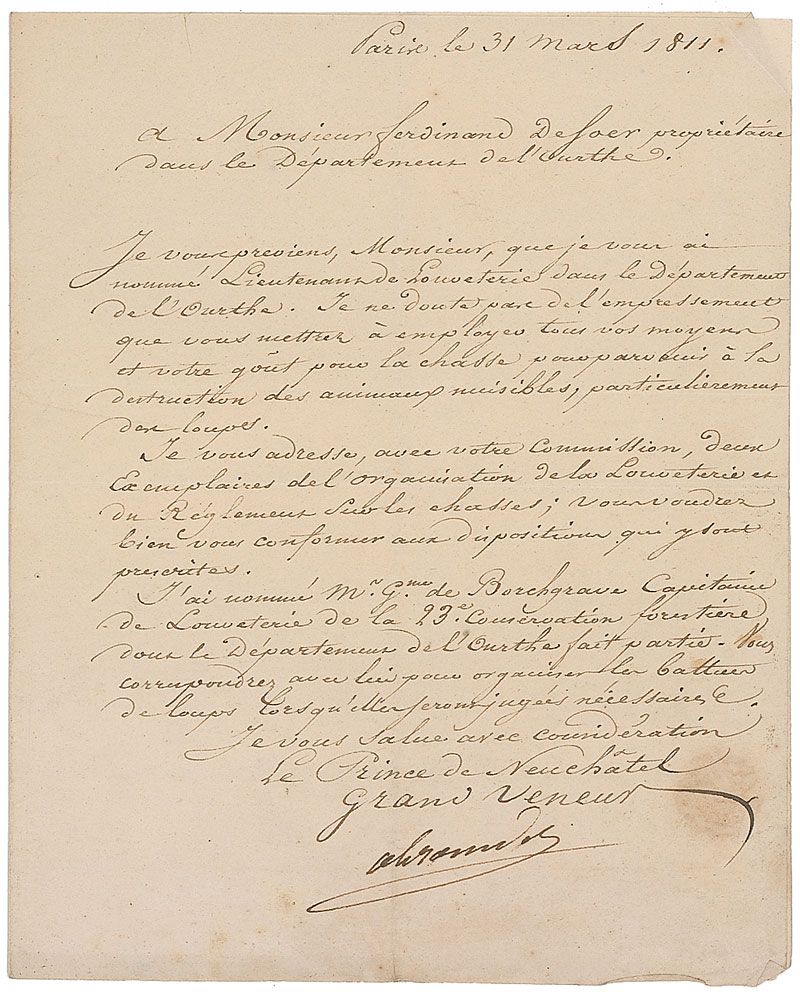 Paris le 31 Mars 1811.
A Monsieur ferdinand Desoer propriétaire
dans le Département de l'Ourthe.
Je vous previens, Monsieur, que je vous ai
nommé Lieutenant de Louveterie dans le Département
de l'Ourthe. Je ne doute pas de l'empressement
que vous mettrez à employer tous vos moyens
et votre goût pour la chasse pour parvenir à la
destruction des animaux nuisibles, particulièrement
des loups.
Je vous adresse, avec votre Commission, deux
Exemplaires de l'organisation de la Louveterie et
du Réglement sur les chasses; vous voudrez
bien vous conformer aux dispositions qui y sont
prescrites.
J'ai nommé Mr. Gme de Borchgrave Capitaine
de Louveterie de la 23e Conservation forestière
dont le Département de l'Ourthe fait partie. Vous
correspondrez avec lui pour organiser les battues
de loups lorsqu'elles seront jugées nécessaires.
Je vous salue avec considération
Le Prince de Neuchâtel
Grand Veneur